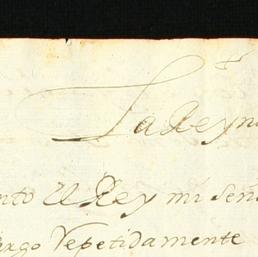 La Reyn
nto El Rey mi señ
argo Repetidamente